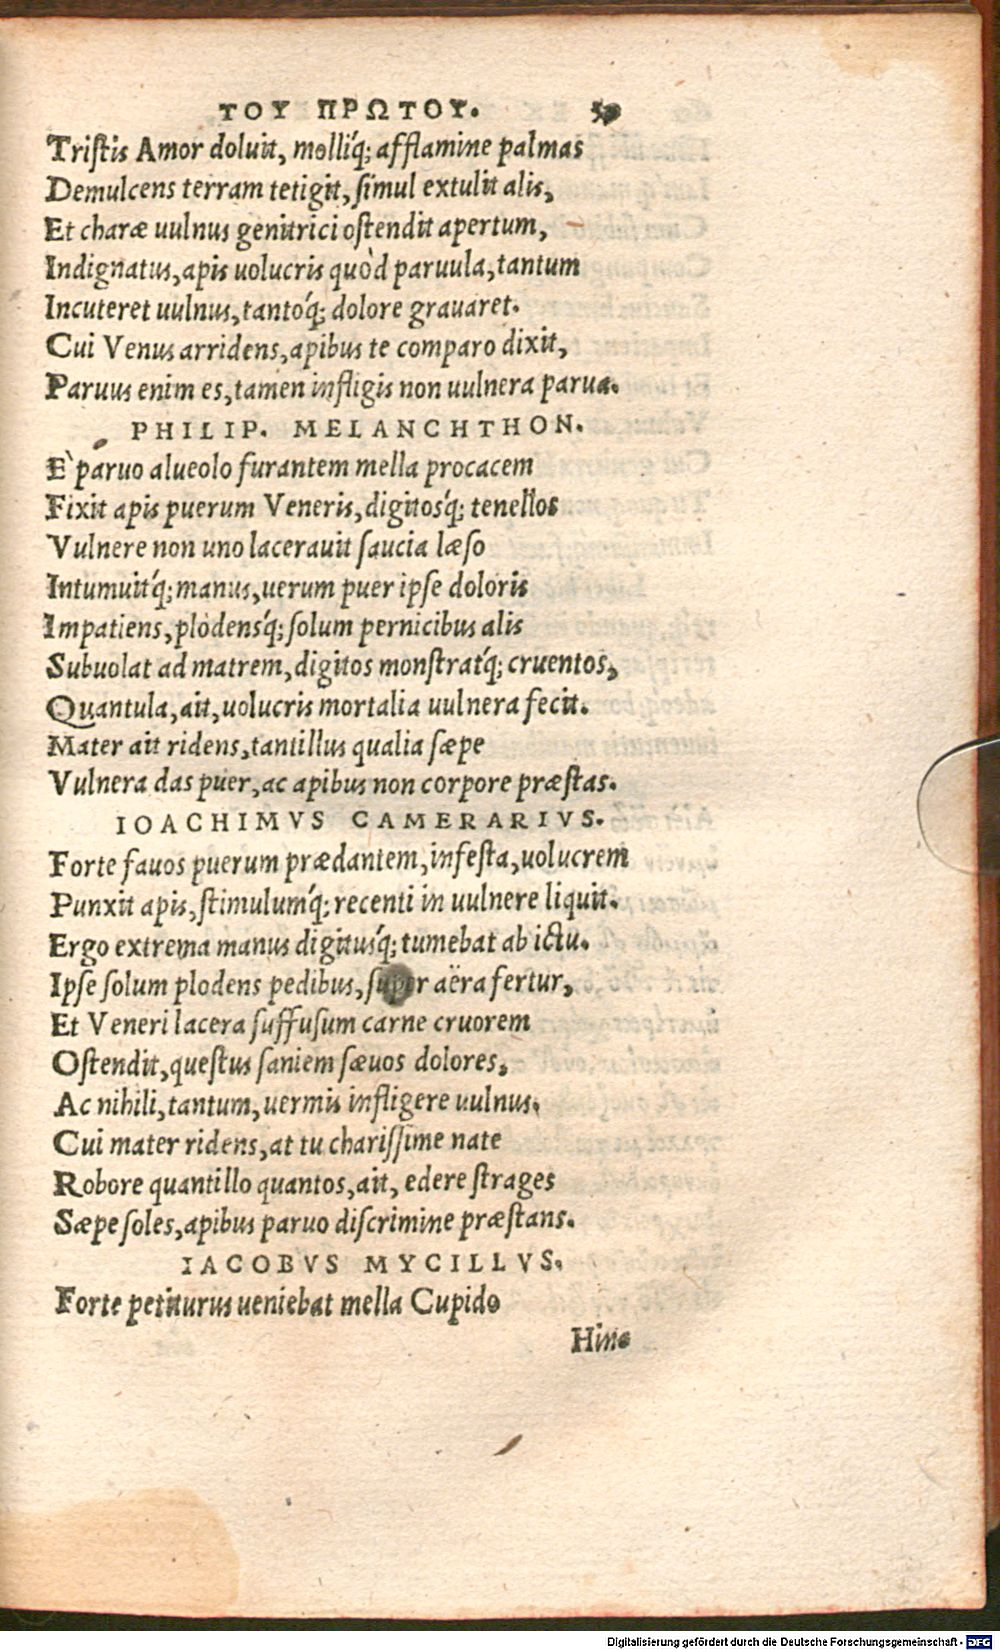 ΤΟΥ ΠΡΩΤΟΥ.
Tristis Amor doluit, molliq́; afflamine palmas
Demulcens terram tetigit, simul extulit alis,
Et charæ uulnus genitrici ostendit apertum,
Indignatus, apis uolucris quòd paruula, tantum
Incuteret uulnus, tantoq́; dolore grauaret.
Cui Venus arridens, apibus te comparo dixit,
Paruus enim es, tamen infligis non uulnera parua.
PHILIP. MELANCHTHON.
E` paruo alueolo furantem mella procacem
Fixit apis puerum Veneris, digitosq́; tenellos
Vulnere non uno lacerauit saucia læso
Intumuitq́; manus, uerum puer ipse doloris
Impatiens, plodensq́; solum pernicibus alis
Subuolat ad matrem, digitos monstratq́; cruentos,
Quantula, ait, uolucris mortalia uulnera fecit.
Mater ait ridens, tantillus qualia sæpe
Vulnera das puer, ac apibus non corpore præstas.
IOACHIMVS CAMERARIVS.
Forte fauos puerum prædantem, infesta, uolucrem
Punxit apis, stimulumq́; recenti in uulnere liquit.
Ergo extrema manus digitusq́; tumebat ab ictu.
Ipse solum plodens pedibus, super aëra fertur,
Et Veneri lacera suffusum carne cruorem
Ostendit, questus saniem sæuos dolores,
Ac nihili, tantum, uermis infligere uulnus.
Cui mater ridens, at tu charissime nate
Robore quantillo quantos, ait, edere strages
Sæpe soles, apibus paruo discrimine præstans.
IACOBVS MYCILLVS.
Forte petiturus ueniebat mella Cupido
Hinc
Digitalisierung gefördert durch die Deutsche Forschungsgemeinschaft - DFG